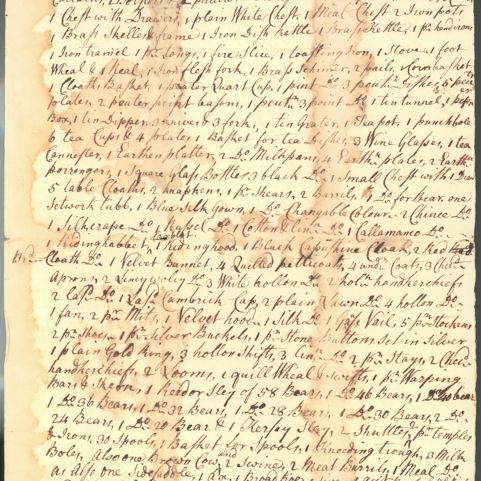 1 Chest with Drawers, 1 plain White Chest, 1 Meal Chest 2 Iron pots,
1 Brass Skellet & frame 1 Iron Dish kettle 1 Brass Kettle, 1 pr. handirons
1 Iron tramel 1 pr. tongs, 1 fire Slice, 1 toasting Iron, 1 Stove, 1 foot
Wheal & 1 Real, 1 Iron flesh fork, 1 Brass Skimer, 2 pails, 1 Cornbasket
1 Cloaths Basket, 1 peuter Quart Cup, 1 pint Do 3 peutr. Dishes 5 peuter
plates, 2 peuter point basons, 1 peutr. 3 point Do 1 tin tunnel, 1 peper
Box, 1 tin Dipper, 3 knives 3 forks, 1 tin Grater, 1 Teapot, 1 punchbole
6 tea Cups & 4 plates, 1 Basket for tea Dishes, 3 Wine Glases, 1 tea
Cannester, 1 Earthen platter, 2 Do Milkpans, 4 Earthn. plates, 2 Earthn.
porrengers, 1 Square Glass Bottle, 3 black Do 1 Small Chest with 1 Draw
5 table Cloaths, 2 knapkens, 1 pr. Shears, 2 Barrils, 1 Do for bear, one
Setwork tubb, 1 Blue Silk Gown, 1 Do Changable Colour, 2 Chince Do
1 Silk crape Do 1 Do 1 Cotton & linn. Do 1 Callamanco Do
1 Ridinghabbet, 1 Ridinghood, 1 Black Cloak, 2 Red
Cloath Do 1 Velvet Bunnet, 4 Quilted petticoats, 4 undr. Coats, 3 Check
Aprons, 2 Do 3 White hollon Do 2 holln. handkerchiefs
2 lase Do 1 Lase Cambrick Cap, 2 plain Lawn Do 4 hollon Do
1 fan, 2 pr. Mits, 1 Velvet hood, 1 Silk Do 1 Gase Vail, 5 pr. Stockens
2 pr. Shoes, 1 pr. Silver Buckels, 1 pr. Stone Buttons Set in Silver
1 plain Gold Ring, 3 hollon Shifts, 3 linn. Do 2 pr. Stays, 2 Check
handkerchiefs, 2 Looms, 1 quill Wheal & Swifts, 1 pr. Warping
Bars & Skern, 1 Reed or Sley of 58 Bears, 1 Do 46 Bears, 1 Do 40 bears
1 Do 36 Bears, 1 Do 32 Bears, 1 Do 28 Bears, 1 Do 30 Bears, 2 Do
24 Bears, 1 Do 20 Bear & 1 Kersey Sley, 2 Shuttles, 7 pr. temples
& Irons, 30 Spools, 1 Basket for Spools, 1 Kneeding trough, 3 Milk
Boles, Also one Brown Cow, and 2 Swine, 2 Meat Barrils, 1 Meal Do
as Also one Sidesaddle, 1 Ax, 1 Broad hoe